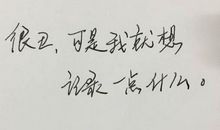 很丑，可是我就想
记录一点什么。